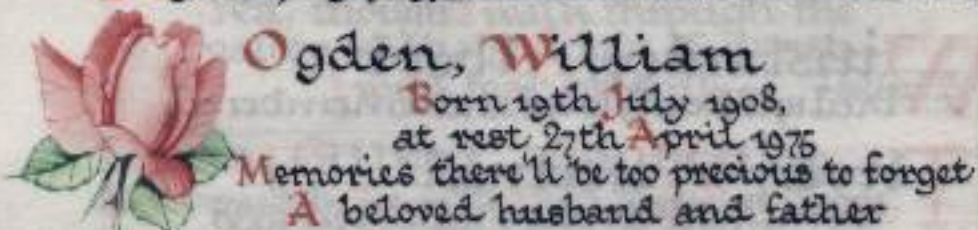 Ogden, William
Born 19th July 1908,
at rest 27th April 1975
Memories there'll be too precious to forget
A beloved husband and father